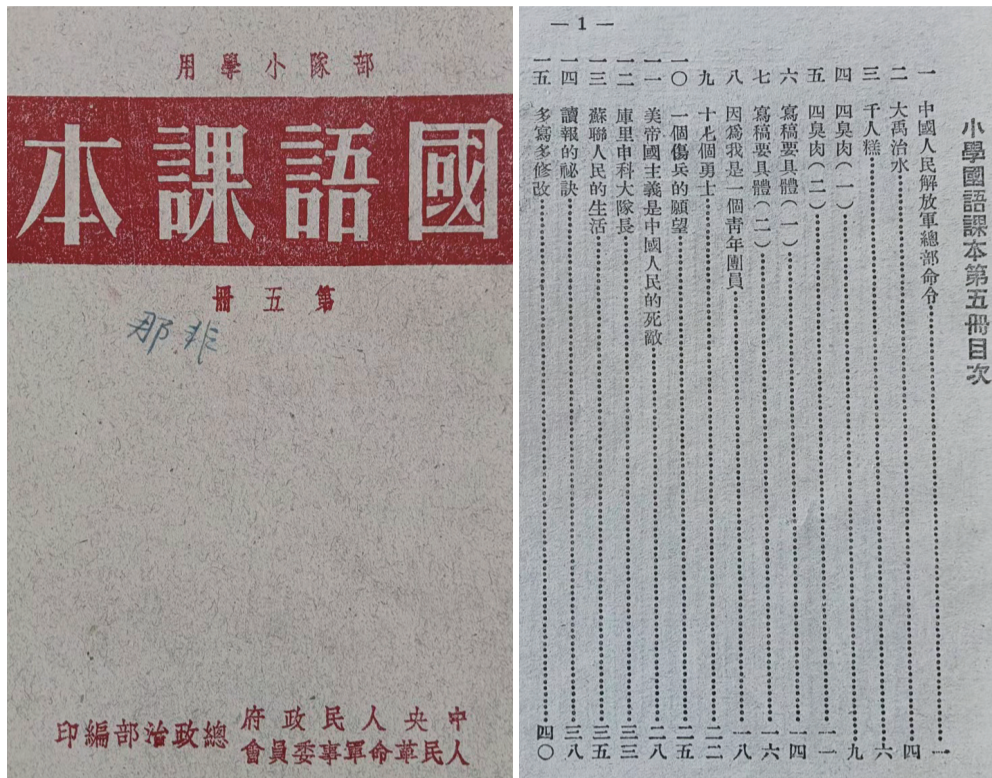 部隊小學用
國語課本
第五冊
那非
中央人民政府
人民革命軍事委員會
總政治部編印
— 1 —
小學國語課本第五冊目次
一 中國人民解放軍總部命令 一
二 大禹治水 四
三 千人糕 六
四 四臭肉（一） 九
五 四臭肉（二） 一一
六 寫稿要具體（一） 一四
七 寫稿要具體（二） 一六
八 因爲我是一個青年團員 一八
九 十九個勇士 二二
一〇 一個傷兵的願望 二五
一一 美帝國主義是中國人民的死敵 二八
一二 庫里申科大隊長 三三
一三 蘇聯人民的生活 三五
一四 讀報的祕訣 三八
一五 多寫多修改 四〇